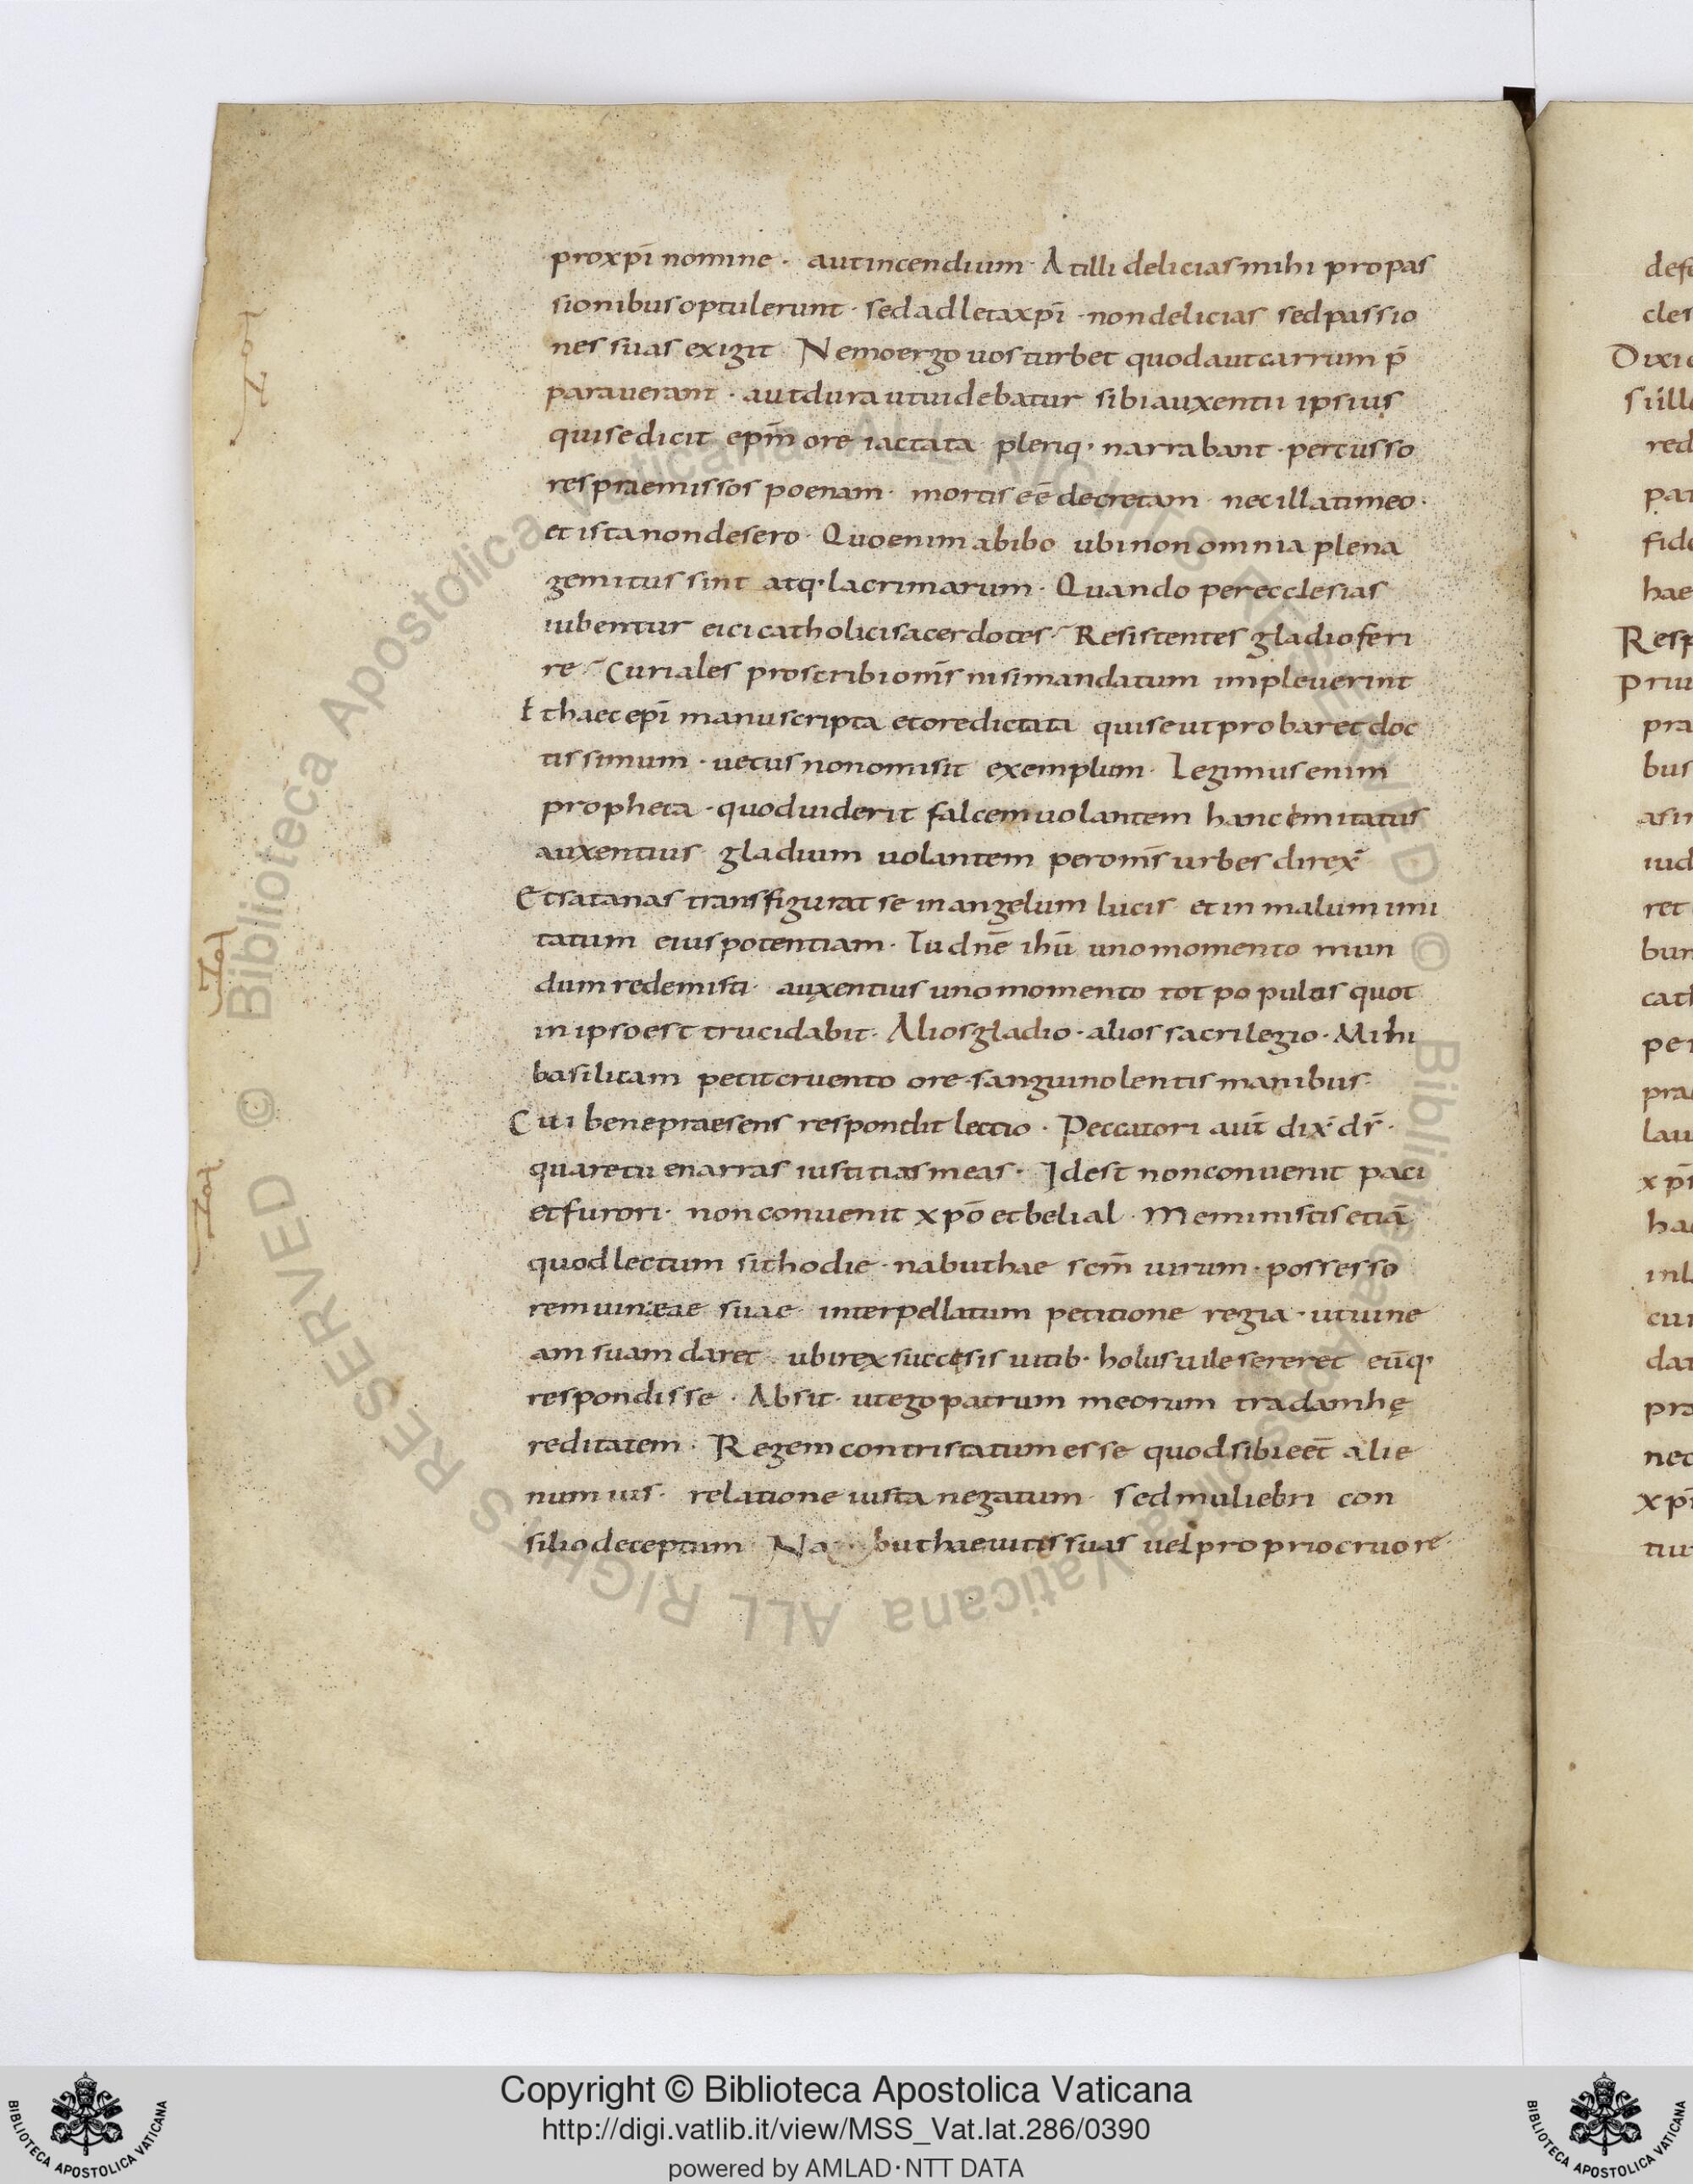 pro xp̄i nomine · aut incendium · At illi delicias mihi pro pas
sionibus optulerunt · sed adleta xp̄i · non delicias sed passio
nes suas exigit Nemo ergo uos turbet quod aut carrum p̄
parauerant · aut dura ut uidebatur sibi auxentii ipsius
qui se dicit ep̄m ore iactata pleriq· narrabant · percusso
res praemissos poenam · mortis eē decretam · nec illa timeo ·
et ista non desero · Quo enim abibo ubi non omnia plena
gemitus sint atq· lacrimarum · Quando per ecclesias
iubentur eici catholici sacerdotes · Resistentes gladio feri
re · Curiales proscribi om̄s nisi mandatum impleuerint
Et haec ep̄i manu scripta et ore dictata qui se ut probaret doc
tissimum · uetus non omisit exemplum · Legimus enim
propheta · quod uiderit falcem uolantem hanc emitatus
auxentius gladium uolantem per om̄s urbes direx̄
Et satanas transfigurat se in angelum lucis et in malum imi
tatum eius potentiam · Tu dn̄e ihū uno momento mun
dum redemisti · auxentius uno momento tot populus quot
in ipso est trucidabit · Alios gladio · alios sacrilegio · Mihi
basilicam petit cruento ore · sanguinolentis manibus ·
Cui bene praesens respondit lectio · Peccatori aut̄ dix̄ d̄s ·
quare tu enarras iustitias meas · Id est non conuenit paci
et furori · non conuenit xp̄o et belial · Meministis etiā
quod lectum sit hodie · nabuthae sc̄m uirum · possesso
rem uineae suae interpellatum petitione regia · ut uine
am suam daret · ubi rex succesis uitib· holus uile sereret eūq·
respondisse · Absit · ut ego patrum meorum tradam hę
reditatem · Regem contristatum esse quod sibi eēt alie
num ius · relatione iusta negatum · sed muliebri con
silio deceptum Na buthae uitis suas uel proprio cruore ·
Copyright © Biblioteca Apostolica Vaticana
http://digi.vatlib.it/view/MSS_Vat.lat.286/0390
powered by AMLAD·NTT DATA